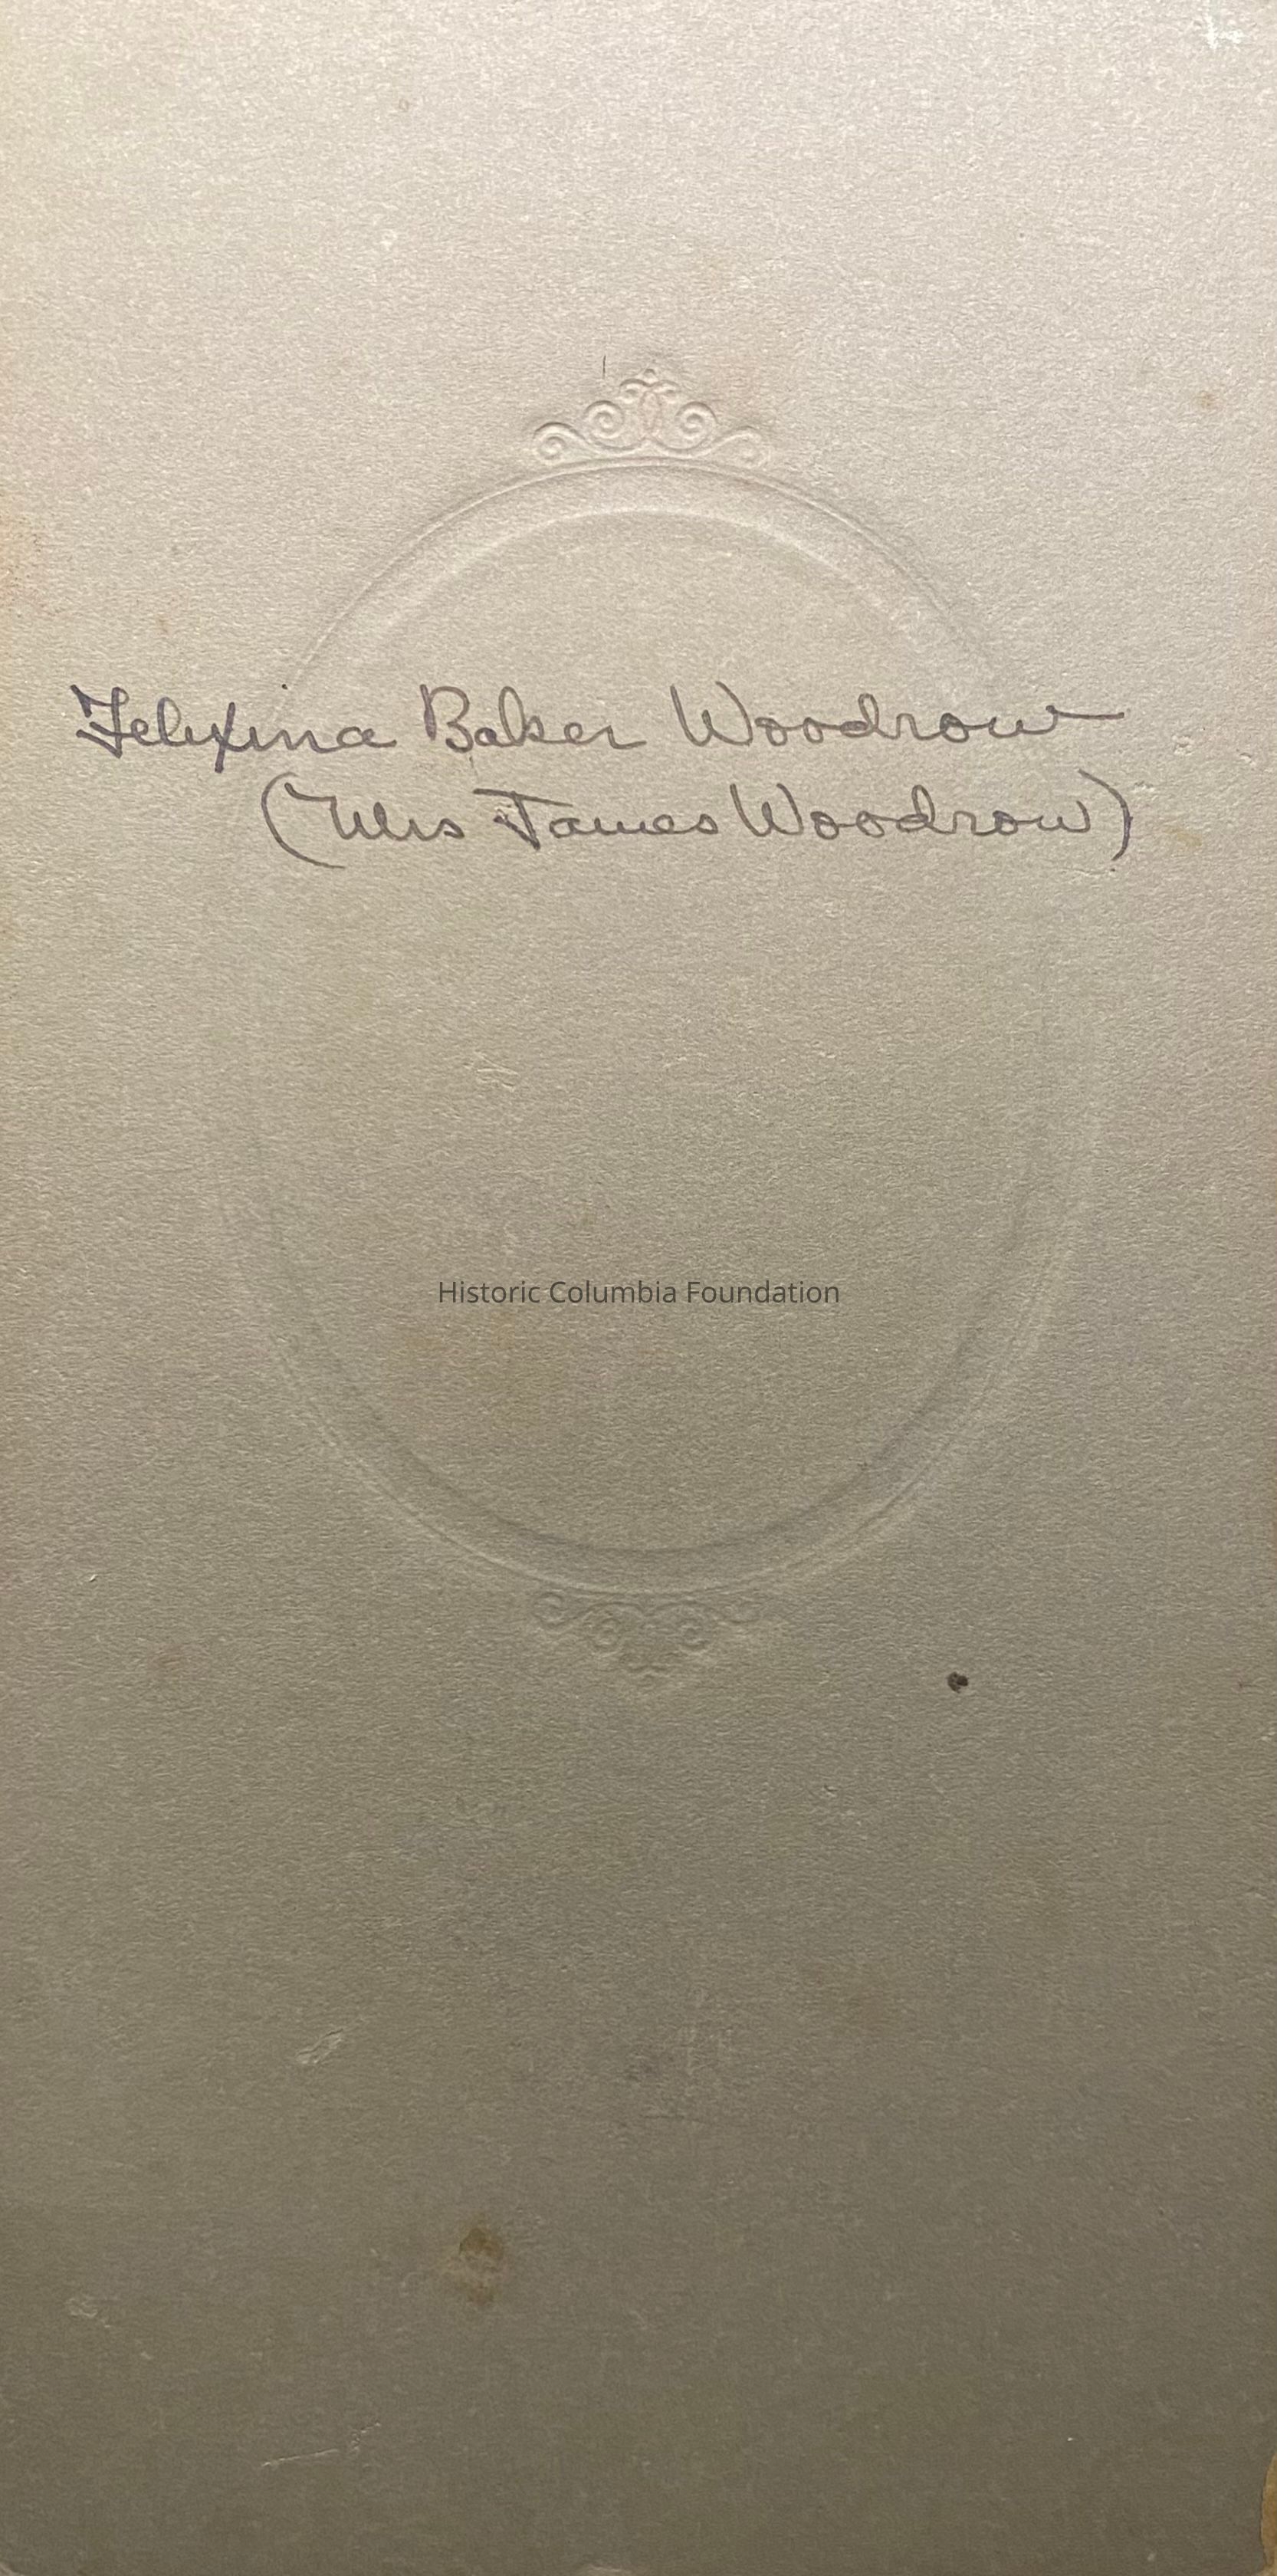 Felixina Baker Woodrow
(Mrs James Woodrow)
Historic Columbia Foundation